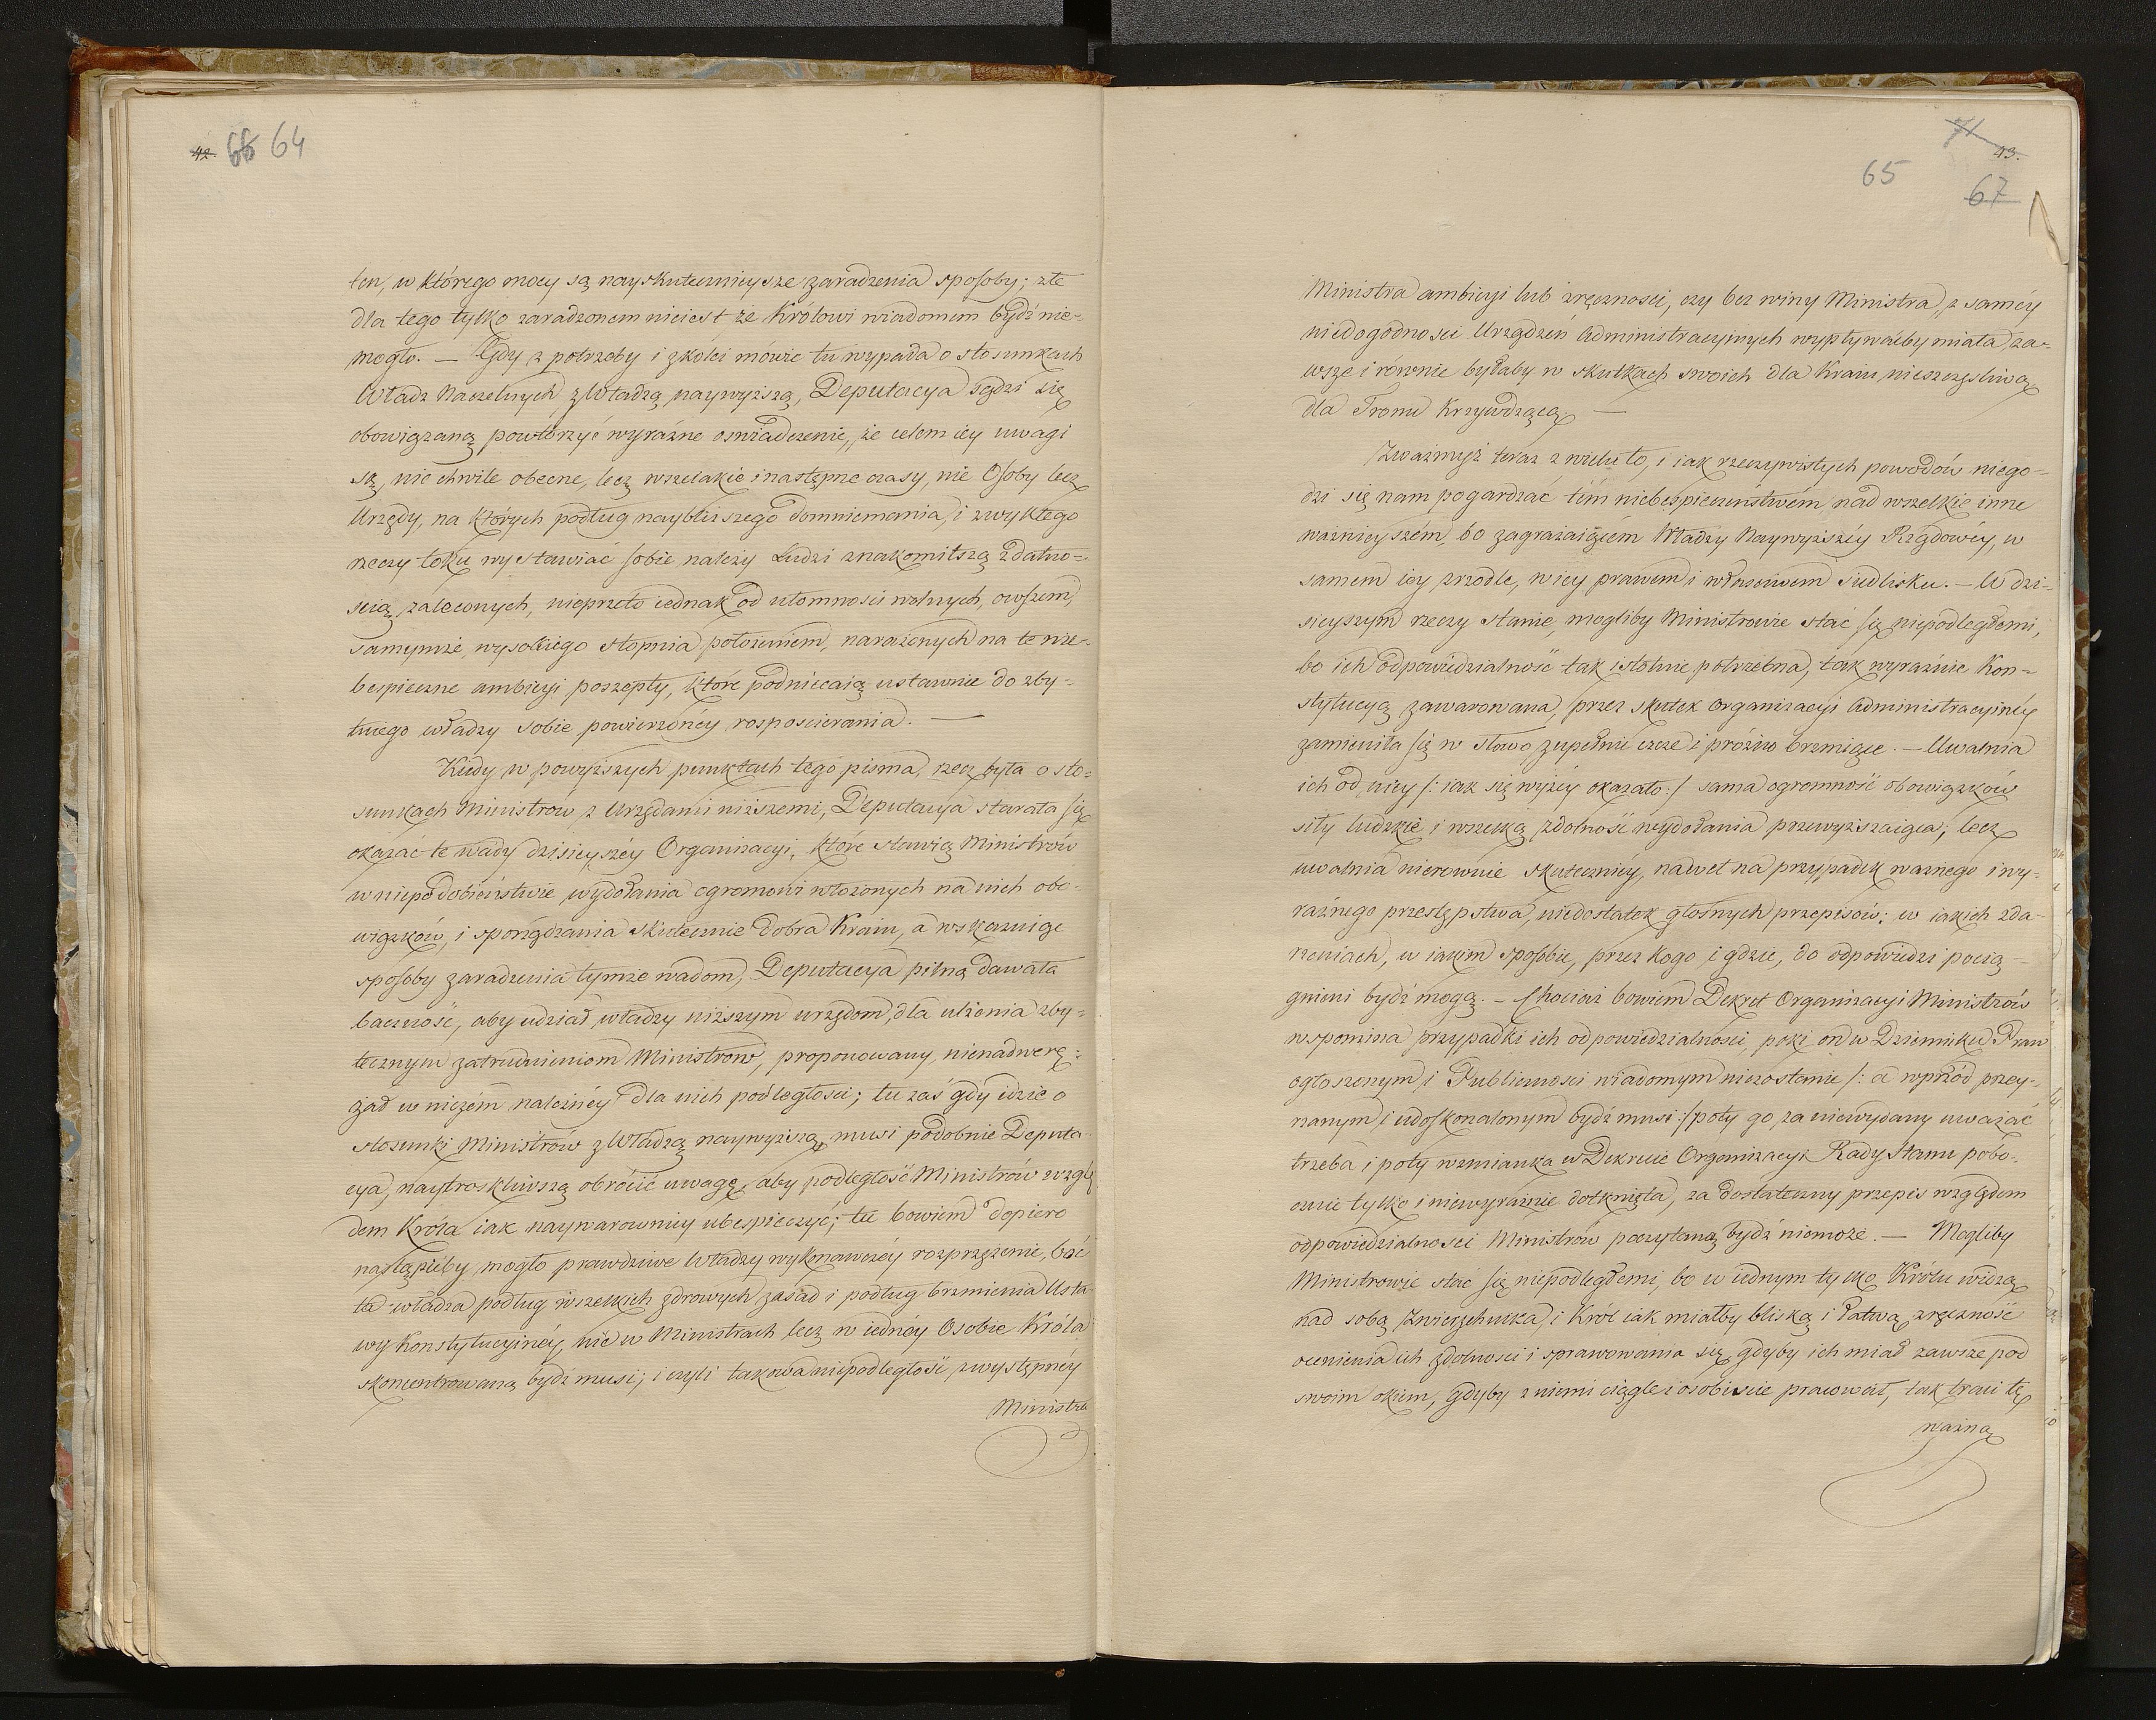 42. 66 64
ten, w którego mocy są nayskutecznieysze zaradzenia sposoby; złe
dla tego tylko zaradzonem nieiest że Królowi wiadomem bydź nie-
mogło. — Gdy z potrzeby i zkolei mówić tu wypada o stosunkach
Władz Naczelnych z Władzą naywyższą, Deputacya sądzi się
obowiązaną powtórzyć wyraźne oswiadczenie, że celem iey uwagi
są, nie chwile obecne, lecz wszelakie i następne czasy, nie Osoby lecz
Urzędy, na których podług naybliższego domniemania, i zwykłego
rzeczy toku wystawiać sobie należy Ludzi znakomitszą zdatno-
scią zaleconych, nieprzeto iednak od ułomnosci wolnych, owszem,
samymże wysokiego stopnia położeniem, narażonych na te nie-
bespieczne ambicyi poszepty, które podniecaią ustawnie do zby-
tniego władzy sobie powierzonéy rosposcierania. —
Kiedy w powyższych punktach tego pisma, rzecz była o sto-
sunkach Ministrów z Urzędami niższemi, Deputacya starała się
okazać te wady dzisieyszéy Organizacyi, które stawią Ministrów
w niepodobieństwie wydołania ogromowi włożonych na nich obo-
wiązków, i sporządzania skutecznie dobra Kraiu, a wskazuiąc
sposoby zaradzenia tymże wadom, Deputacya pilną dawała
baczność, aby udział władzy niższym urzędom, dla ulżenia zby-
tecznym zatrudnieniom Ministrów, proponowany, nienadwerę-
żał w niczém należnéy dla nich podległosci; tu zaś gdy idzie o
stosunki Ministrów z Władzą naywyższą, musi podobnie Deputa-
cya, naytroskliwszą obrócić uwagę, aby podległość Ministrów wzglę
dem Króla iak naywarowniey ubespieczyć; tu bowiem dopiero
nastąpićby mogło prawdziwe Władzy wykonawczéy rozprzężenie, boć
ta władza podług wszelkich zdrowych zasad i podług brzmienia Usta-
wy Konstytucyinéy, nie w Ministrach lecz w iednéy Osobie Króla
skoncentrowaną bydź musi; i czyli takowa niepodległość z występnéy
Ministra
71 43.
65 67
Ministra ambicyi lub zręcznosci, czy bez winy Ministra, z saméy
niedogodnosci Urządzeń Administracyinych wypływaćby miała, za-
wsze i równie byłaby w skutkach swoich dla Kraiu nieszczęsliwą
dla Tronu Krzywdzącą. —
Zważmyż teraz z wielu to, i iak rzeczywistych powodów niego-
dzi się nam pogardzać tém niebespieczeństwém nad wszelkie inne
ważnieyszém, bo zagrażaiącém Władzy Naywyższéy Rządowéy, w
samem iey zrzodle, w iey prawem i własciwem Siedlisku. — W dzi-
sieyszym rzeczy stanie, mogliby Ministrowie stać się niepodległemi,
bo ich odpowiedzialność tak istotnie potrzebna, tak wyraźnie Kon-
stytucyą zawarowana, przez skutek Organizacyi Administracyinéy
zamieniła się w słowo zupełnie czcze i prożno brzmiące. — Uwalnia
ich od niey /: iak się wyżéy okazało :/ sama ogromność obowiązków
siły ludzkie i wszelką zdolność wydołania przewyższaiąca; lecz
uwalnia nierownie skuteczniéy, nawet na przypadek ważnego i wy-
raźnego przestępstwa, niedostatek głośnych przepisów: w iakich zda-
rzeniach, w iakim sposobie, przez kogo i gdzie, do odpowiedzi pocią-
gnieni bydź mogą. — Chociaż bowiem Dekret Organizacyi Ministrów
wspomina przypadki ich odpowiedzialnosci, poki on w Dzienniku Praw
ogłoszonym i Publicznosci wiadomym niezostanie /: a wprzód przey-
rzanym i udoskonalonym bydź musi :/ poty go za niewydany uważać
trzeba i poty wzmianka w Dekrecie Organizacyi Rady Stanu pobo-
cznie tylko i niewyraźnie dotknięta, za dostateczny przepis względem
odpowiedzialnosci Ministrów poczytaną bydź niemoże. — Mogliby
Ministrowie stać się niepodległemi, bo w iednym tylko Królu widzą
nad sobą Zwierzchnika, i Król iak miałby bliską i łatwą zręczność
ocenienia ich zdolnosci i sprawowania się, gdyby ich miał zawsze pod
swoim okiem, gdyby z niemi ciągle i osobiscie pracował, tak traci tę
ważną